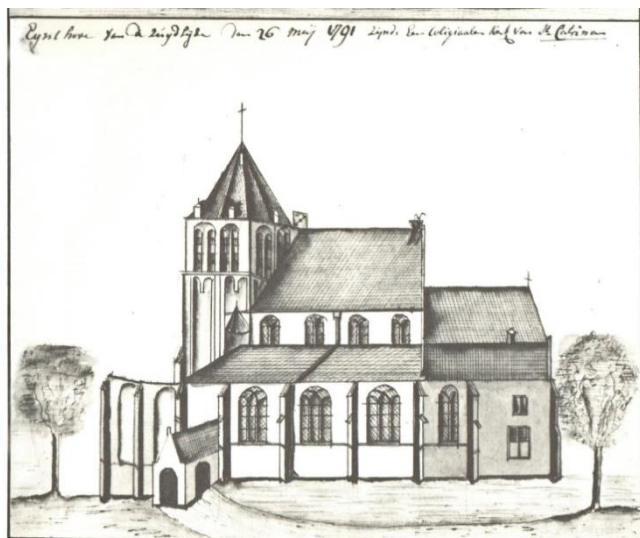 Eyndhove van de Zuydtzijde den 26 meij 1791 zijnde Een Collegiaalen Kerk van St. Catrina